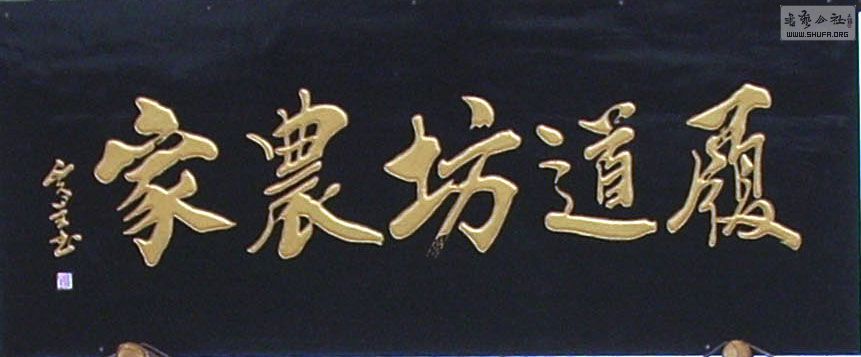 履道坊農家
书艺公社
WWW.SHUFA.ORG